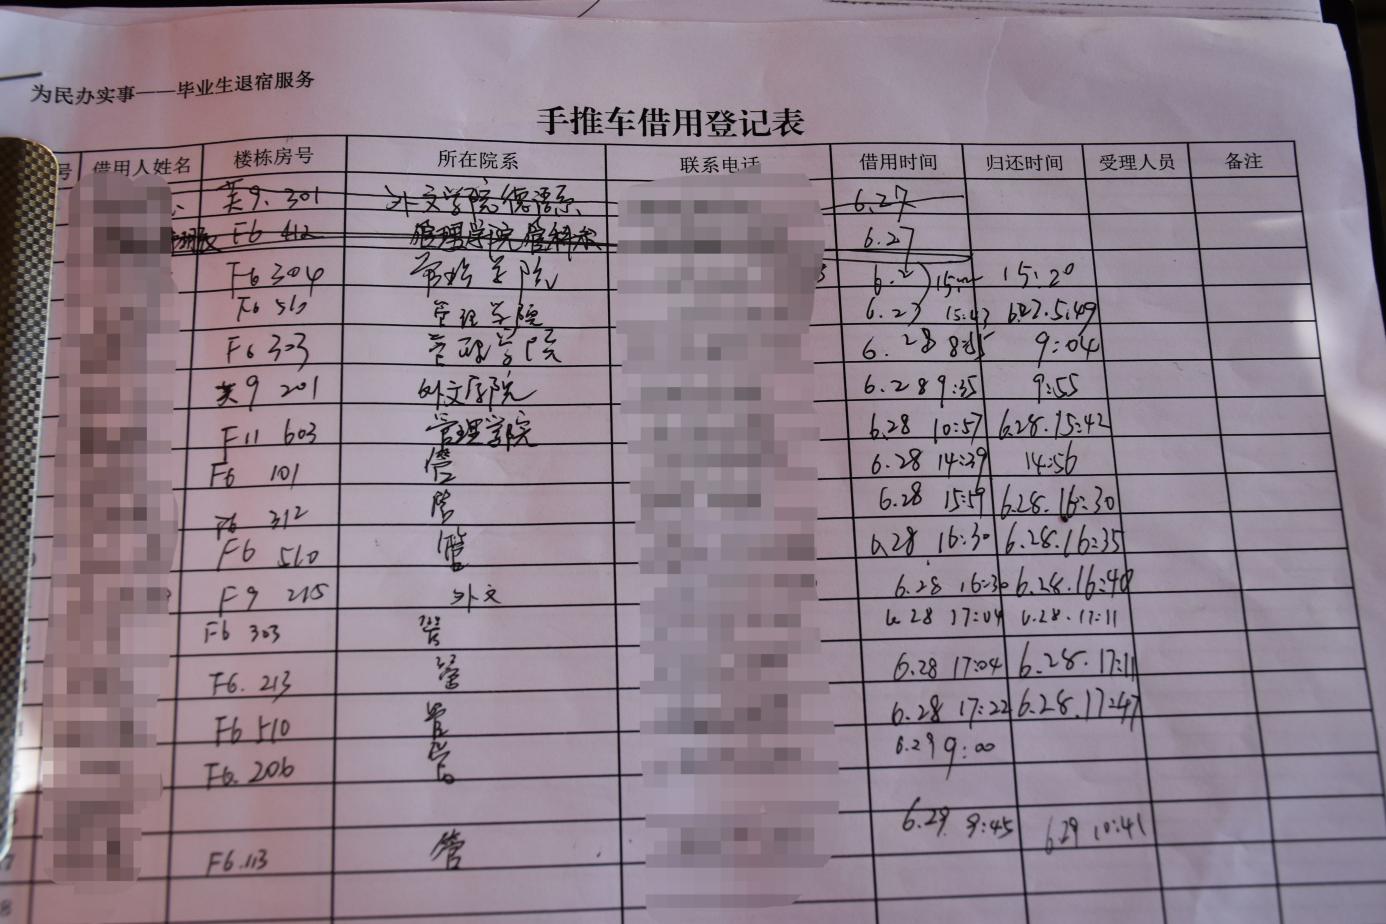 为民办实事——毕业生退宿服务
手推车借用登记表
号 借用人姓名 楼栋房号 所在院系 联系电话 借用时间 归还时间 受理人员 备注
芙9.301 外文学院德语系 6.27
F6 412 管理学院管科 6.27
F6 304 学院 15:20
F6 管理学院 6.27 15:47
F6 303 管理学院 6.28 9:04
芙9 201 外文学院 6.28 9:35 9:55
F11 603 管理学院 6.28 10:57 6.28.15:42
F6 101 管 6.28 14:39 14:56
F6 312 管 6.28 15:59 6.28.16:30
F6 510 管 6.28 16:30 6.28.16:35
F9 215 外文 6.28 16:30 6.28.16:40
F6 303 管 6.28 17:04 6.28.17:11
F6.213 管 6.28 17:04 6.28.17:11
F6 510 管 6.28 17:22 6.28.17:47
F6.206 6.29 9:00
F6.113 管 6.29 9:45 6.29 10:41